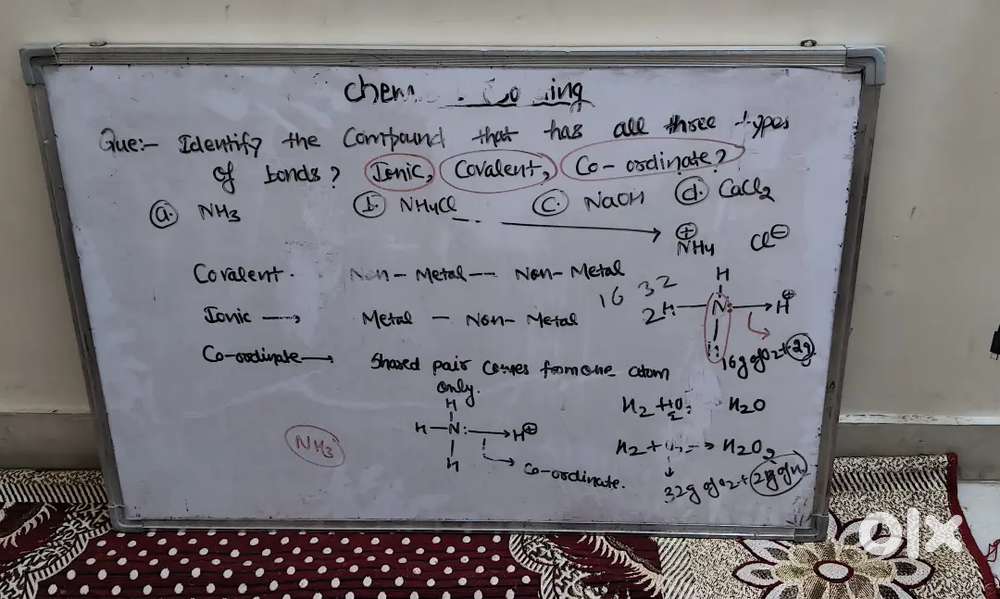 Que:- Identify the Compound that has all three types
of bonds? Ionic, Covalent, Co-ordinate?
a. NH3 b. NH4Cl c. NaOH d. CaCl2
⊕ NH4 Cl⊖
Covalent. Non-Metal-- Non-Metal
Ionic → Metal - Non-Metal
Co-ordinate → Shared pair comes from one atom
only.
16 32
H
2H N: → H⊕
16g of O2 + 2g
H
H-N: → H⊕
H
Co-ordinate.
NH3
H2 + H2O
H2 + → H2O2
32g of O2 + 2g
olx